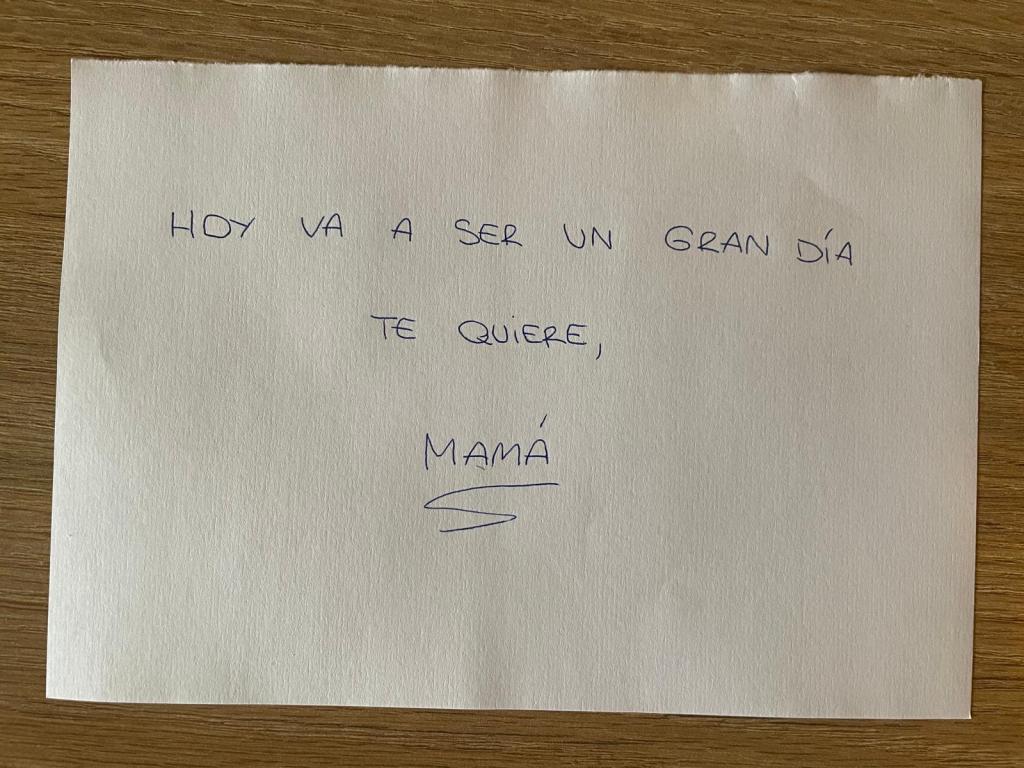 HOY VA A SER UN GRAN DÍA
TE QUIERE,
MAMÁ